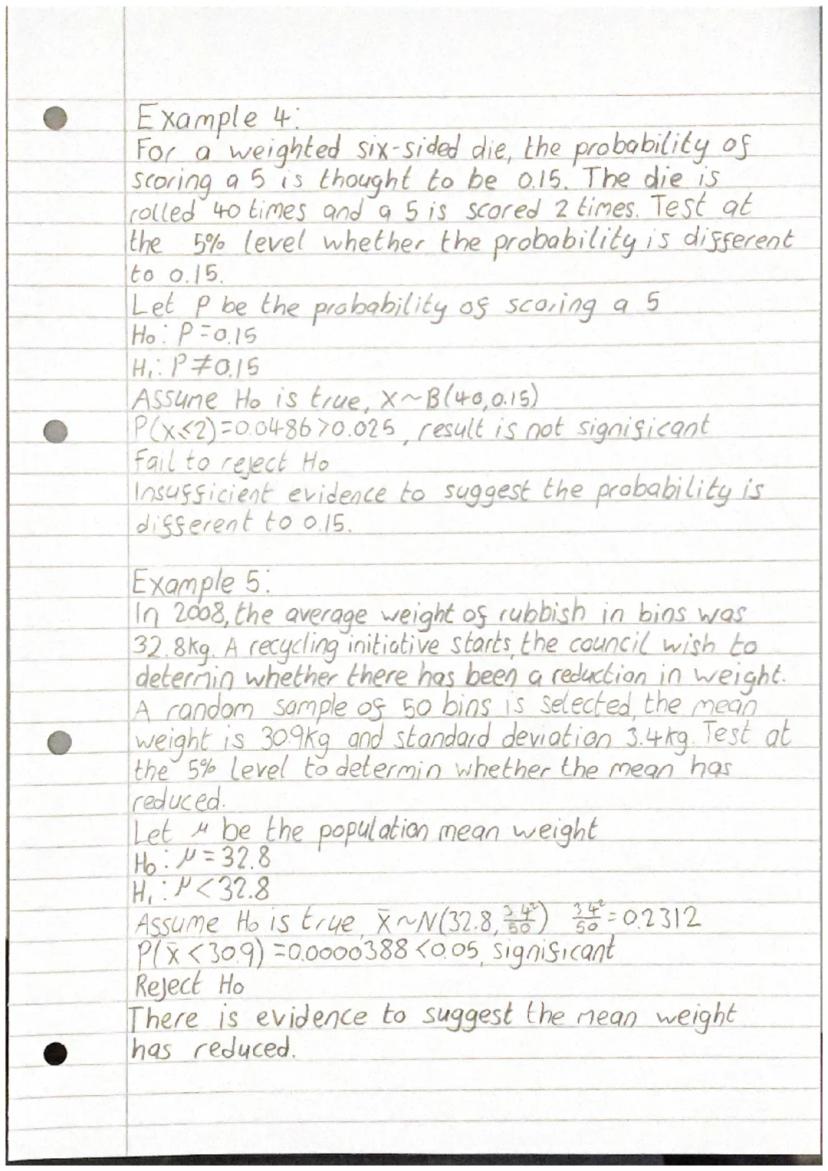 Example 4:
For a weighted six-sided die, the probability of
scoring a 5 is thought to be 0.15. The die is
rolled 40 times and a 5 is scored 2 times. Test at
the 5% level whether the probability is different
to 0.15.
Let P be the probability of scoring a 5
H₀: P=0.15
H₁: P≠0.15
Assume H₀ is true, X~B(40,0.15)
P(X≤2)=0.0486>0.025, result is not significant
Fail to reject H₀
Insufficient evidence to suggest the probability is
different to 0.15.
Example 5:
In 2008, the average weight of rubbish in bins was
32.8kg. A recycling initiative starts, the council wish to
determin whether there has been a reduction in weight.
A random sample of 50 bins is selected, the mean
weight is 30.9kg and standard deviation 3.4kg. Test at
the 5% level to determin whether the mean has
reduced.
Let μ be the population mean weight
H₀: μ=32.8
H₁: μ<32.8
Assume H₀ is true, x̄~N(32.8, 3.4²/50) 3.4²/50=0.2312
P(x̄<30.9)=0.0000388<0.05, significant
Reject H₀
There is evidence to suggest the mean weight
has reduced.